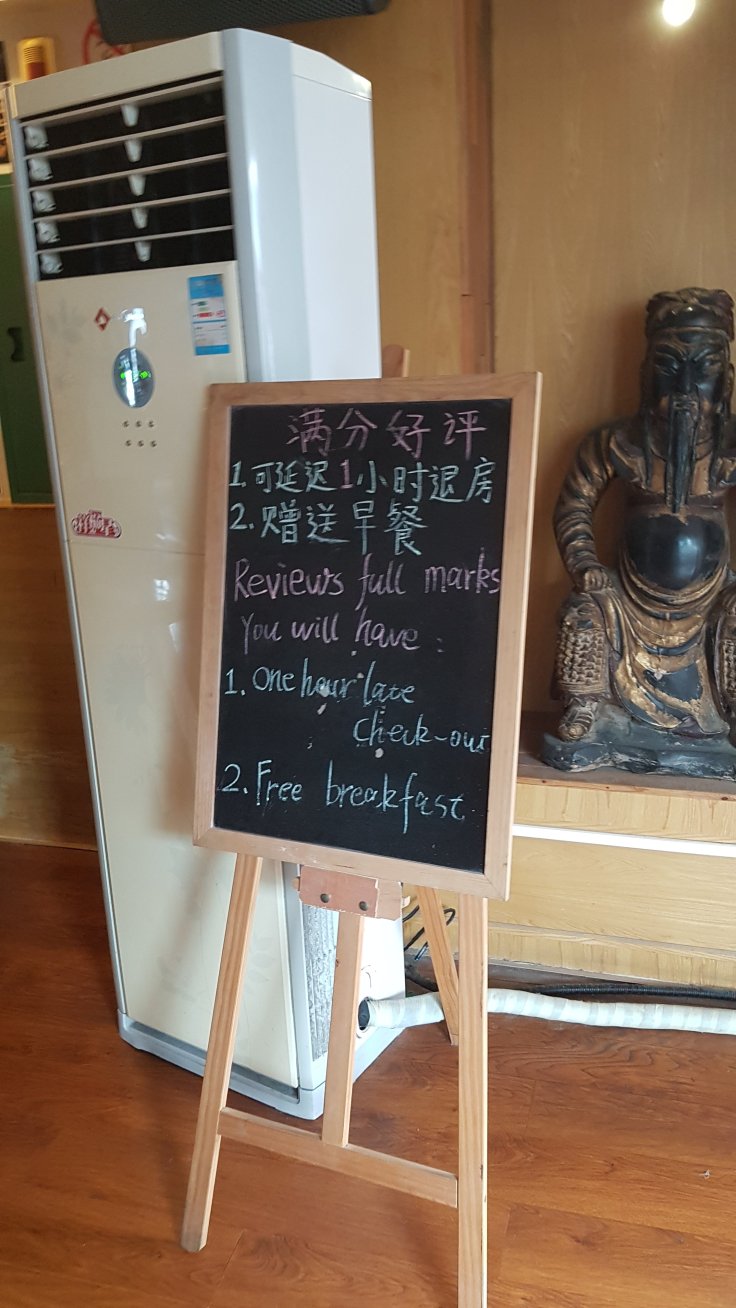 满分好评
1.可延迟1小时退房
2.赠送早餐
Reviews full marks
You will have :
1. One hour late
Check-out
2. Free breakfast